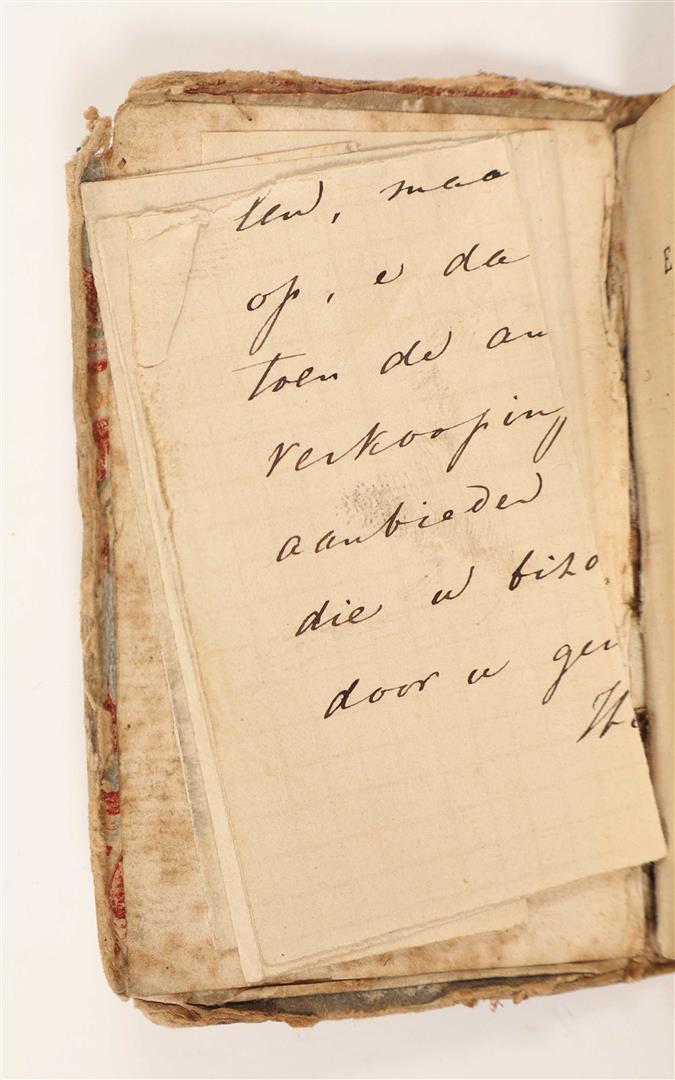 len, maa
op, e da
toen de an
verkooping
aanbieden
die u biso
door u gen
E